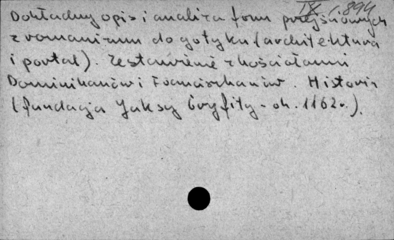 IX. 1.894
Dokładny opis i analiza form przejściowych
z romanizmu do gotyku (architektura
i portal). Zestawienie z kościołami
Dominikanów i Franciszkanów. Historia
(fundacja Jaksy Gryfity - ok. 1162 r.).